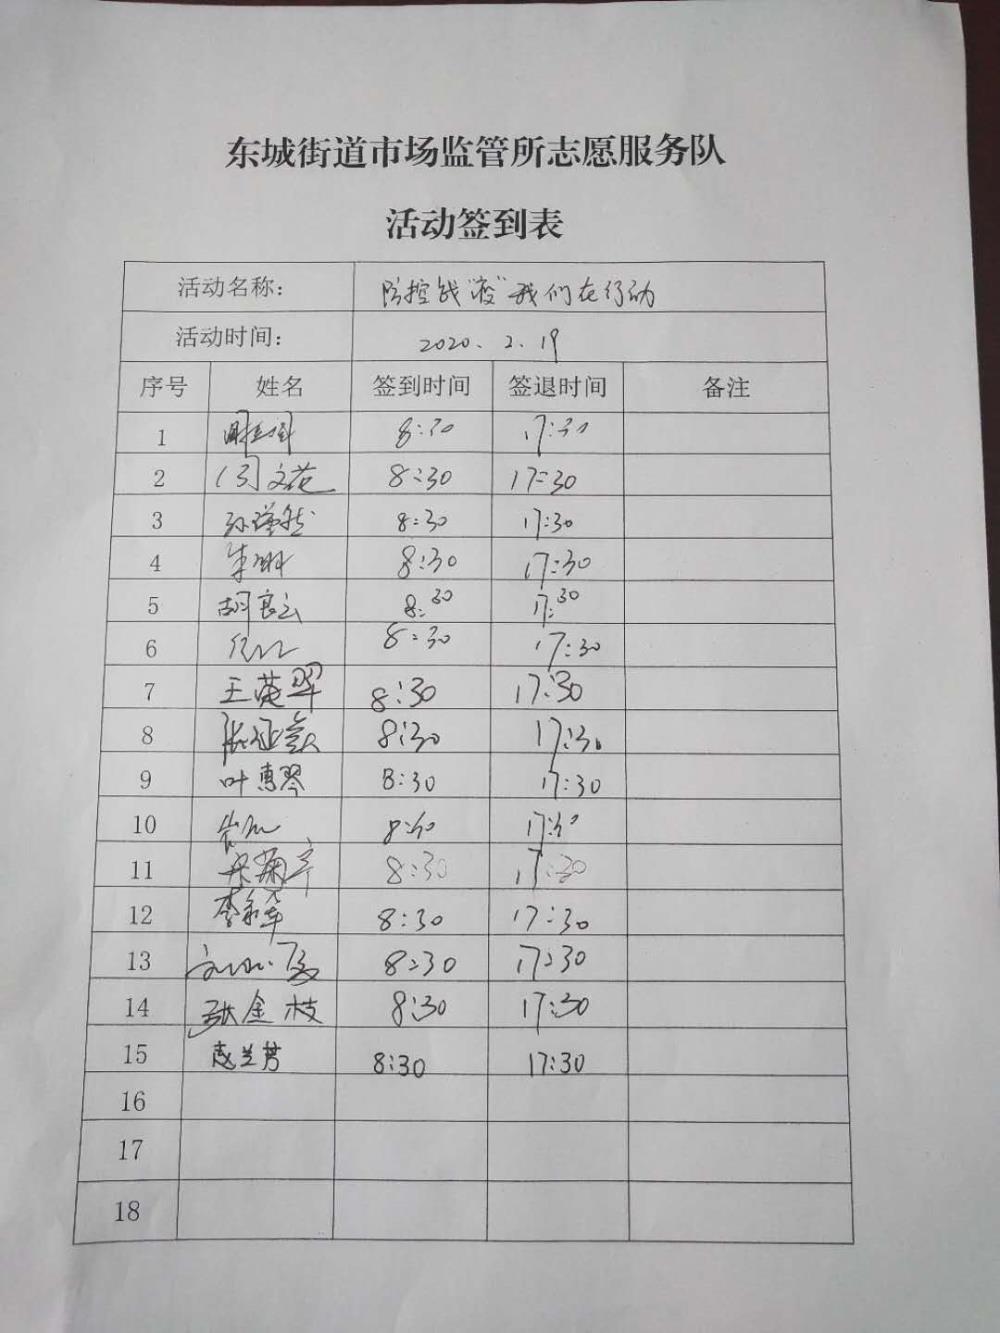 东城街道市场监管所志愿服务队
活动签到表
活动名称： 防控战“疫”我们在行动
活动时间： 2020.2.19
序号 姓名 签到时间 签退时间 备注
1 8:30 17:30
2 文花 8:30 17:30
3 8:30 17:30
4 8:30 17:30
5 胡良云 8:30 17:30
6 8:30 17:30
7 王莲翠 8:30 17:30
8 8:30 17:30
9 叶惠琴 8:30 17:30
10 8:30 17:30
11 8:30 17:30
12 8:30 17:30
13 8:30 17:30
14 张金枝 8:30 17:30
15 赵兰芳 8:30 17:30
16
17
18